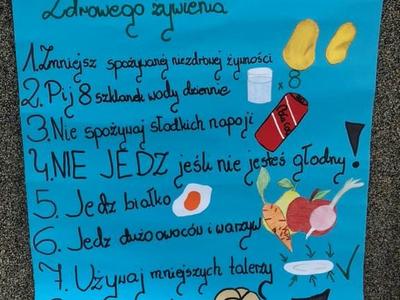 Zdrowego żywienia
1. Zmniejsz spożywanej niezdrowej żywności
2. Pij 8 szklanek wody dziennie
x 8
3. Nie spożywaj słodkich napoji
4. NIE JEDZ jeśli nie jesteś głodny!
5. Jedz białko
6. Jedz dużo owoców i warzyw
7. Używaj mniejszych talerzy